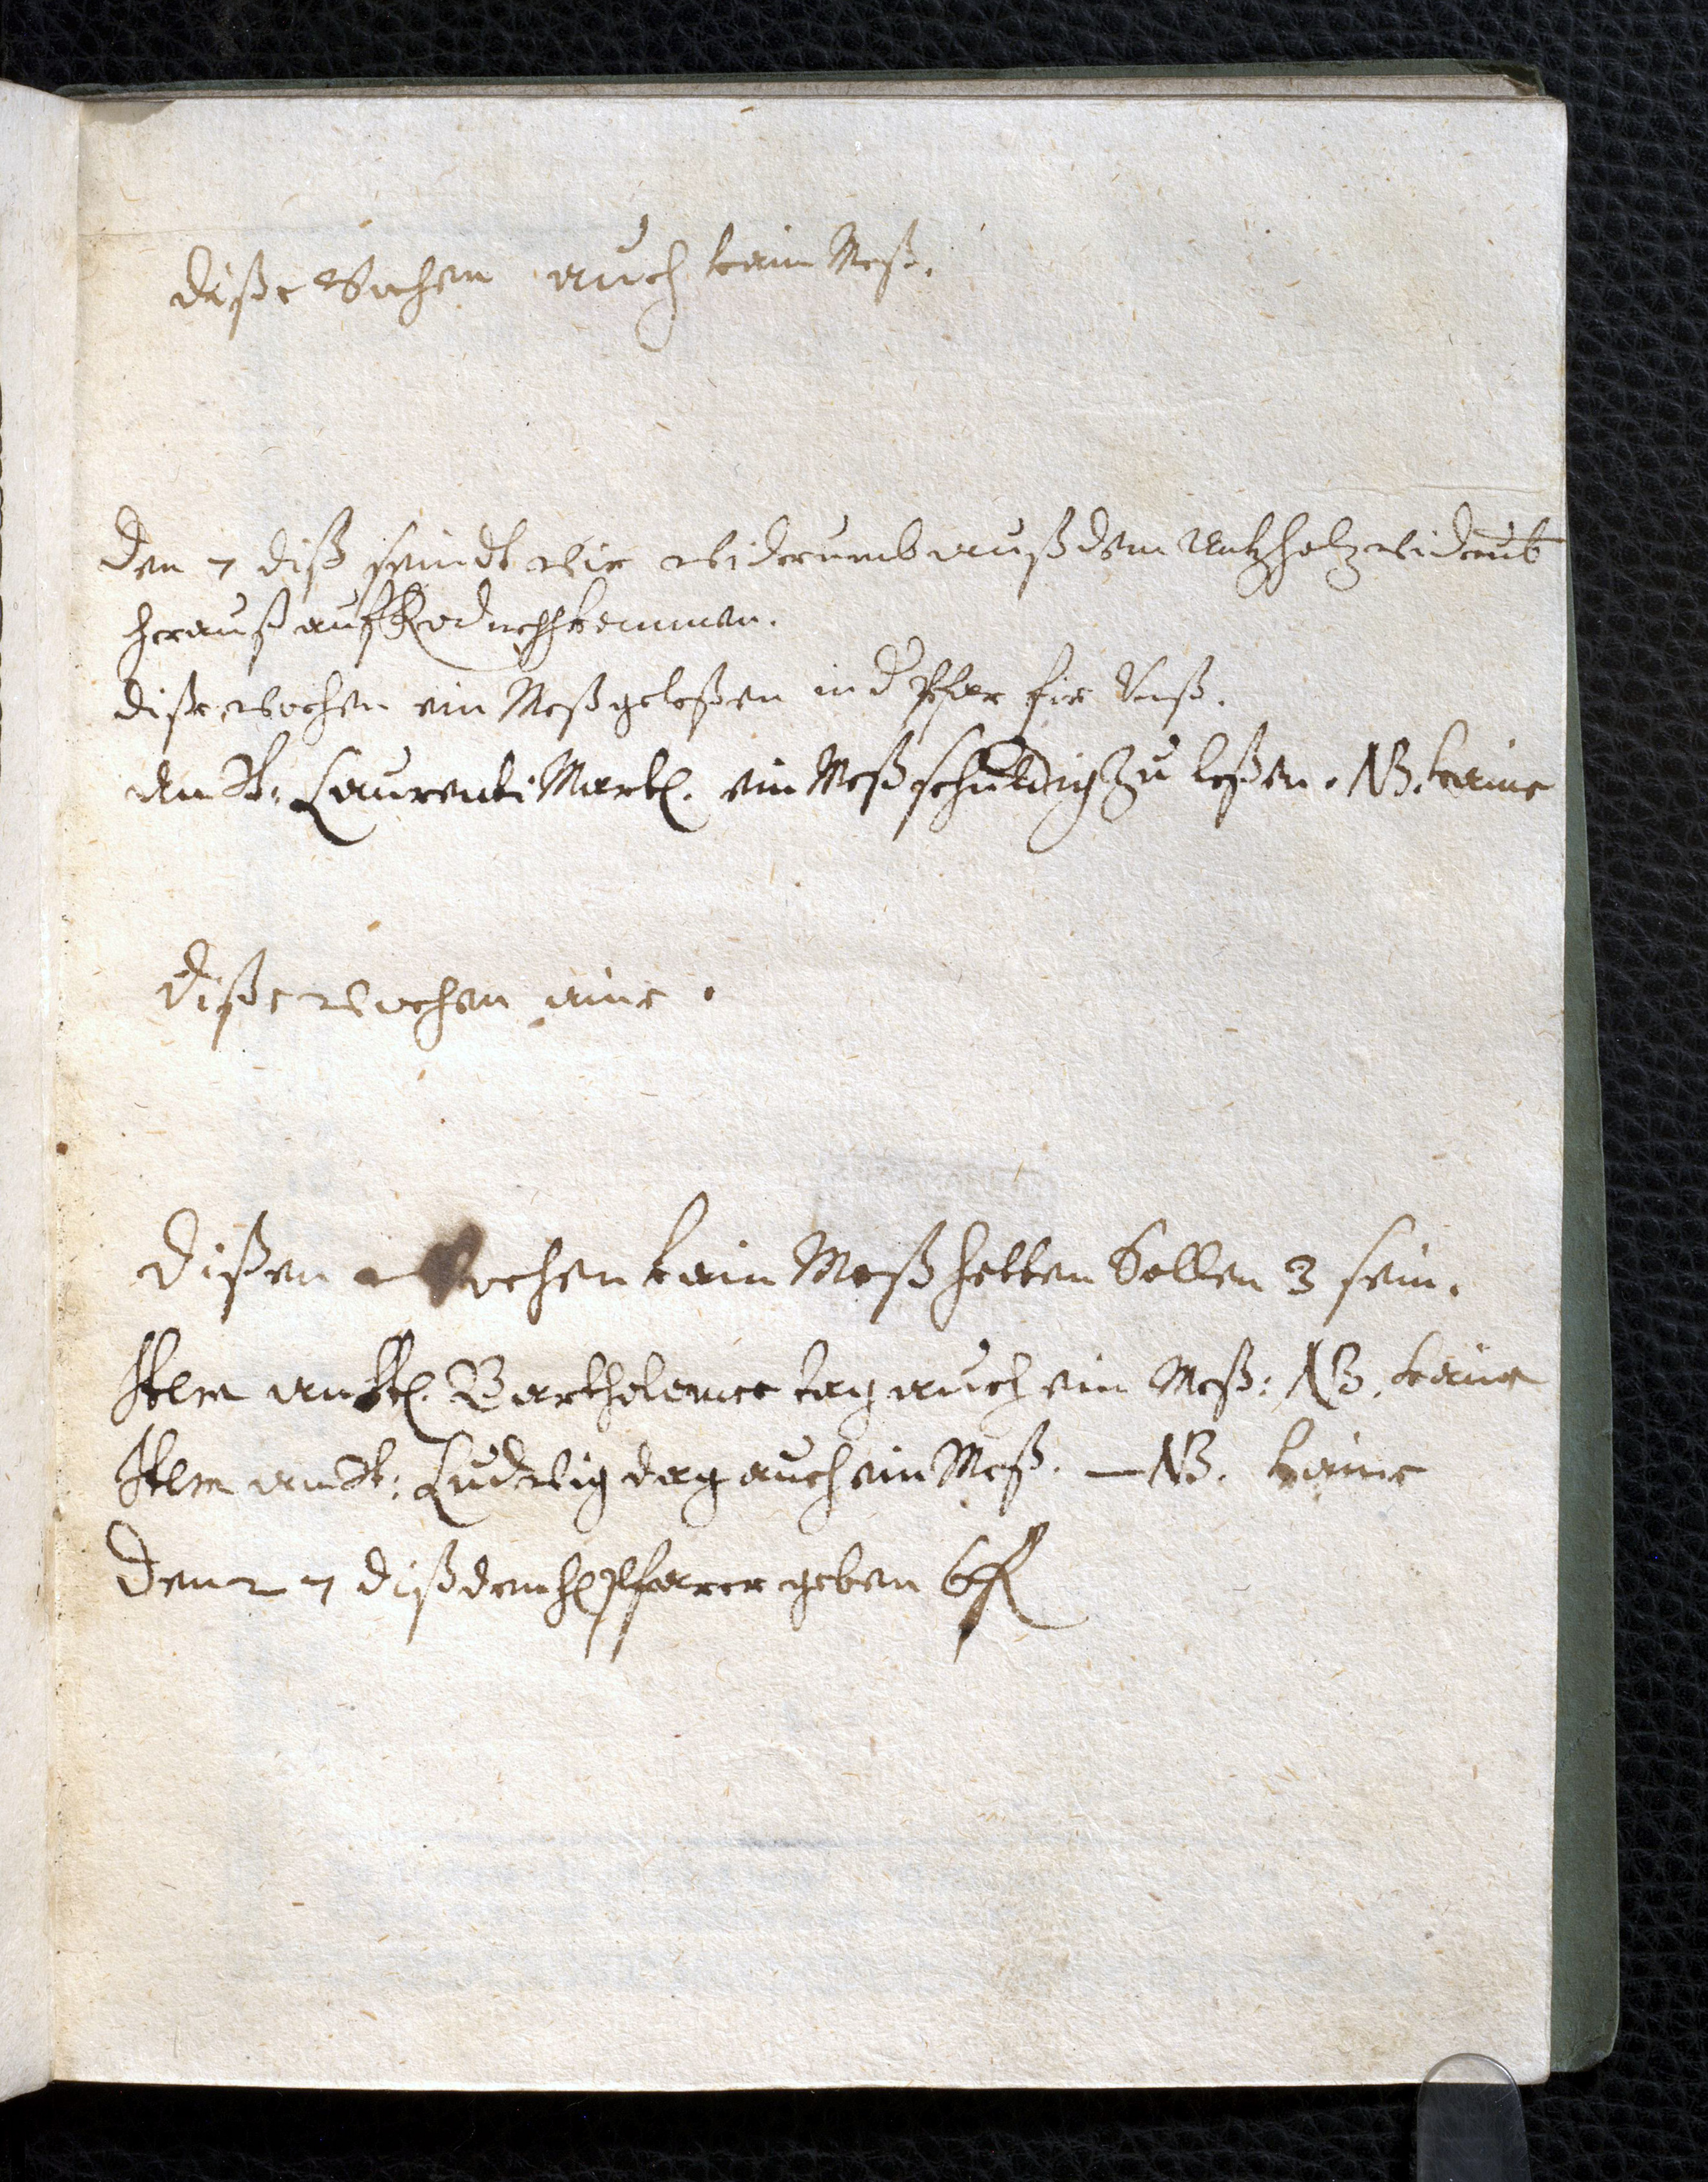 diße Wochen auch kain Meß.
Den 7 diß seindt wir widerumb auß dem widerub
herauß auf kommen.
diße wochen ein Meß geleßen in d Pfar fir Vnß.
An St: Laurenti Mart. ein Meß schuldig zu leßen. NB. kaine
diße wochen aine.
Dißen wochen kain Meß hetten Sollen 3 sein.
Item an St. Bartholomee tag auch ein Meß: NB. kaine
Item an St: Ludwig dag auch ein Meß. — NB. kaine
Den 27 diß dem H Pfarer geben 6 fl